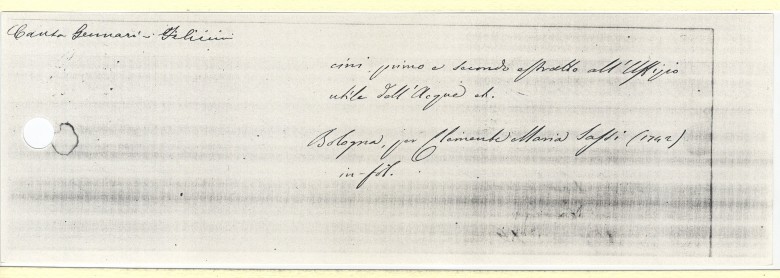 Causa Gennari - Felicini
cini primo e secondo estratto all'Uffizio
utile dell'Acque et.
Bologna, per Clemente Maria Sassi (1742)
in-fol.